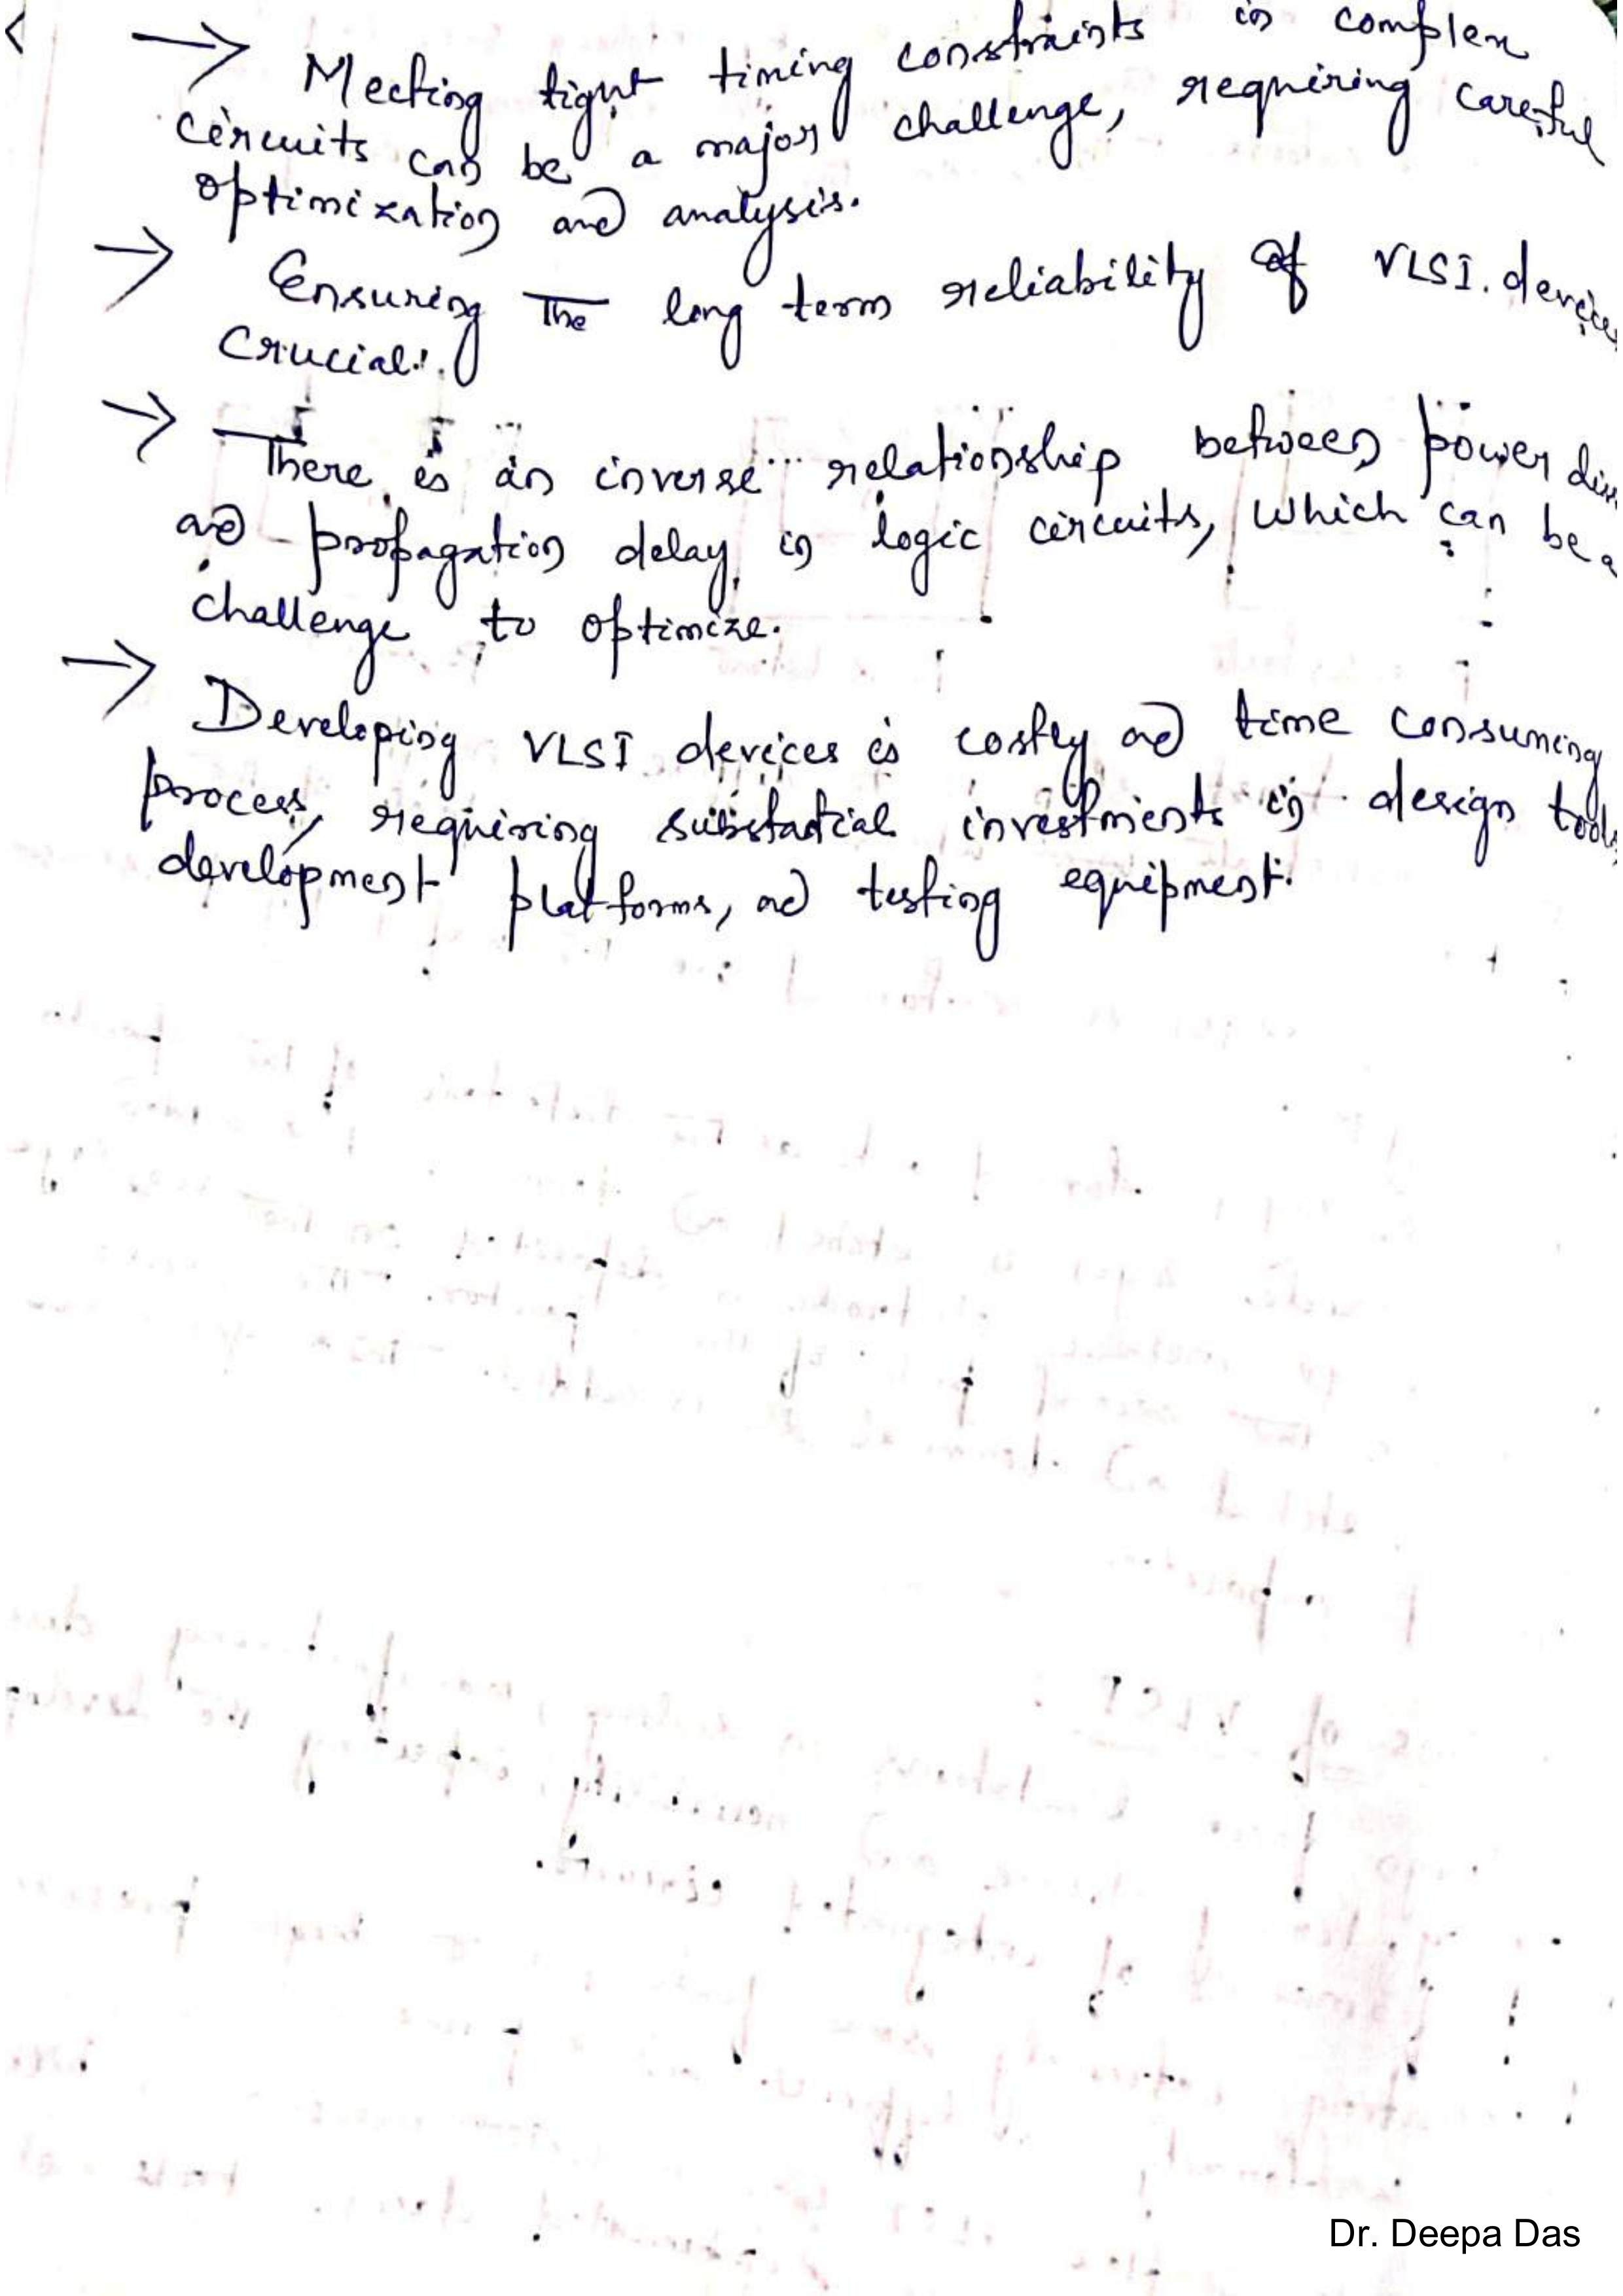 → Meeting tight timing constraints in complex
circuits can be a major challenge, requiring careful
optimization and analysis.
→ Ensuring the long term reliability of VLSI devices
crucial.
→ There is an inverse relationship between power
and propagation delay in logic circuits, which can be a
challenge to optimize.
→ Developing VLSI devices is costly and time consuming
process, requiring substantial investments in design tools,
development platforms, and testing equipment.
Dr. Deepa Das